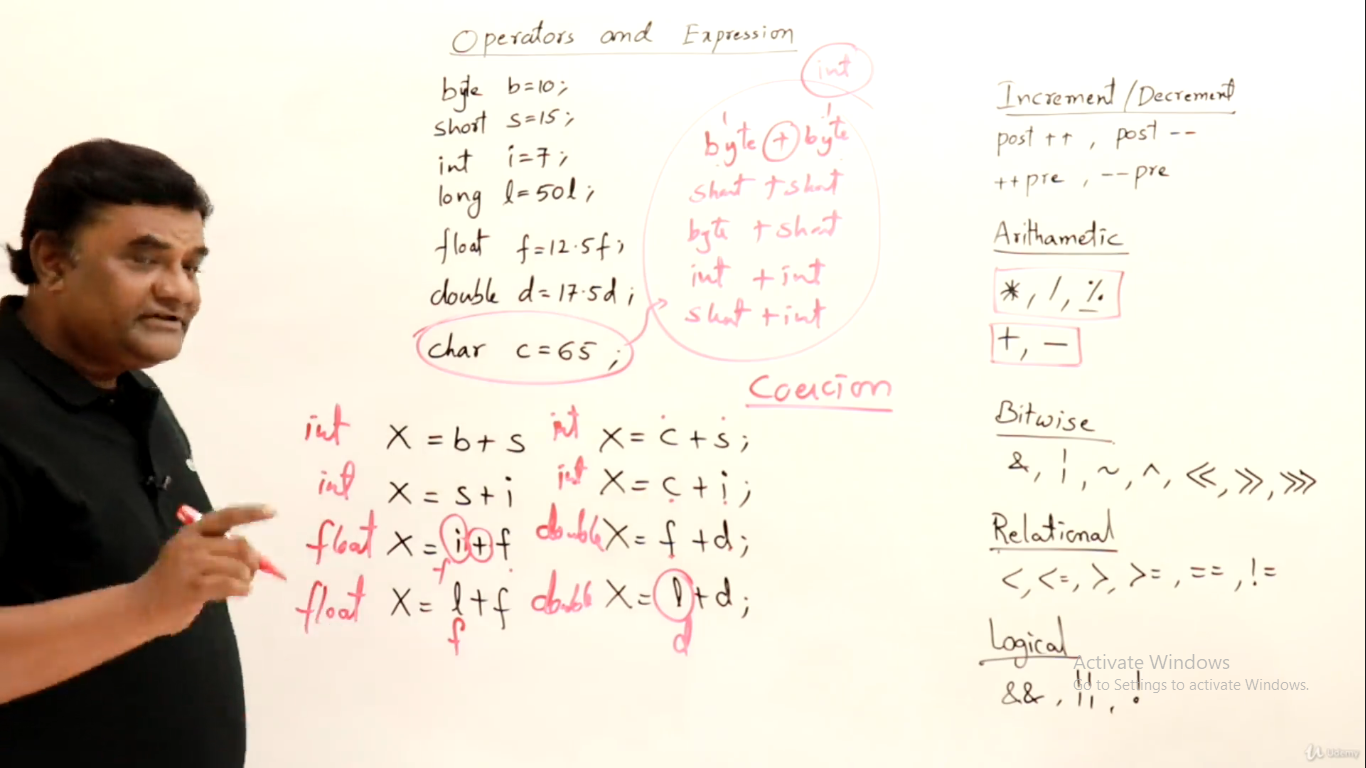 Operators and Expression
byte b=10;
short s=15;
int i=7;
long l=50l;
float f=12.5f;
double d=17.5d;
char c=65;
int
byte + byte
short + short
byte + short
int + int
short + int
Coercion
int X = b + s
int X = s + i
float X = i + f
f
float X = l + f
f
int X = c + s;
int X = c + i;
double X = f + d;
double X = l + d;
d
Increment/Decrement
post ++ , post --
++pre , --pre
Arithametic
*, /, %
+, -
Bitwise
&, |, ~, ^, <<, >>, >>>
Relational
<, <=, >, >=, ==, !=
Logical
&&, ||, !
Activate Windows
Go to Settings to activate Windows.
Udemy